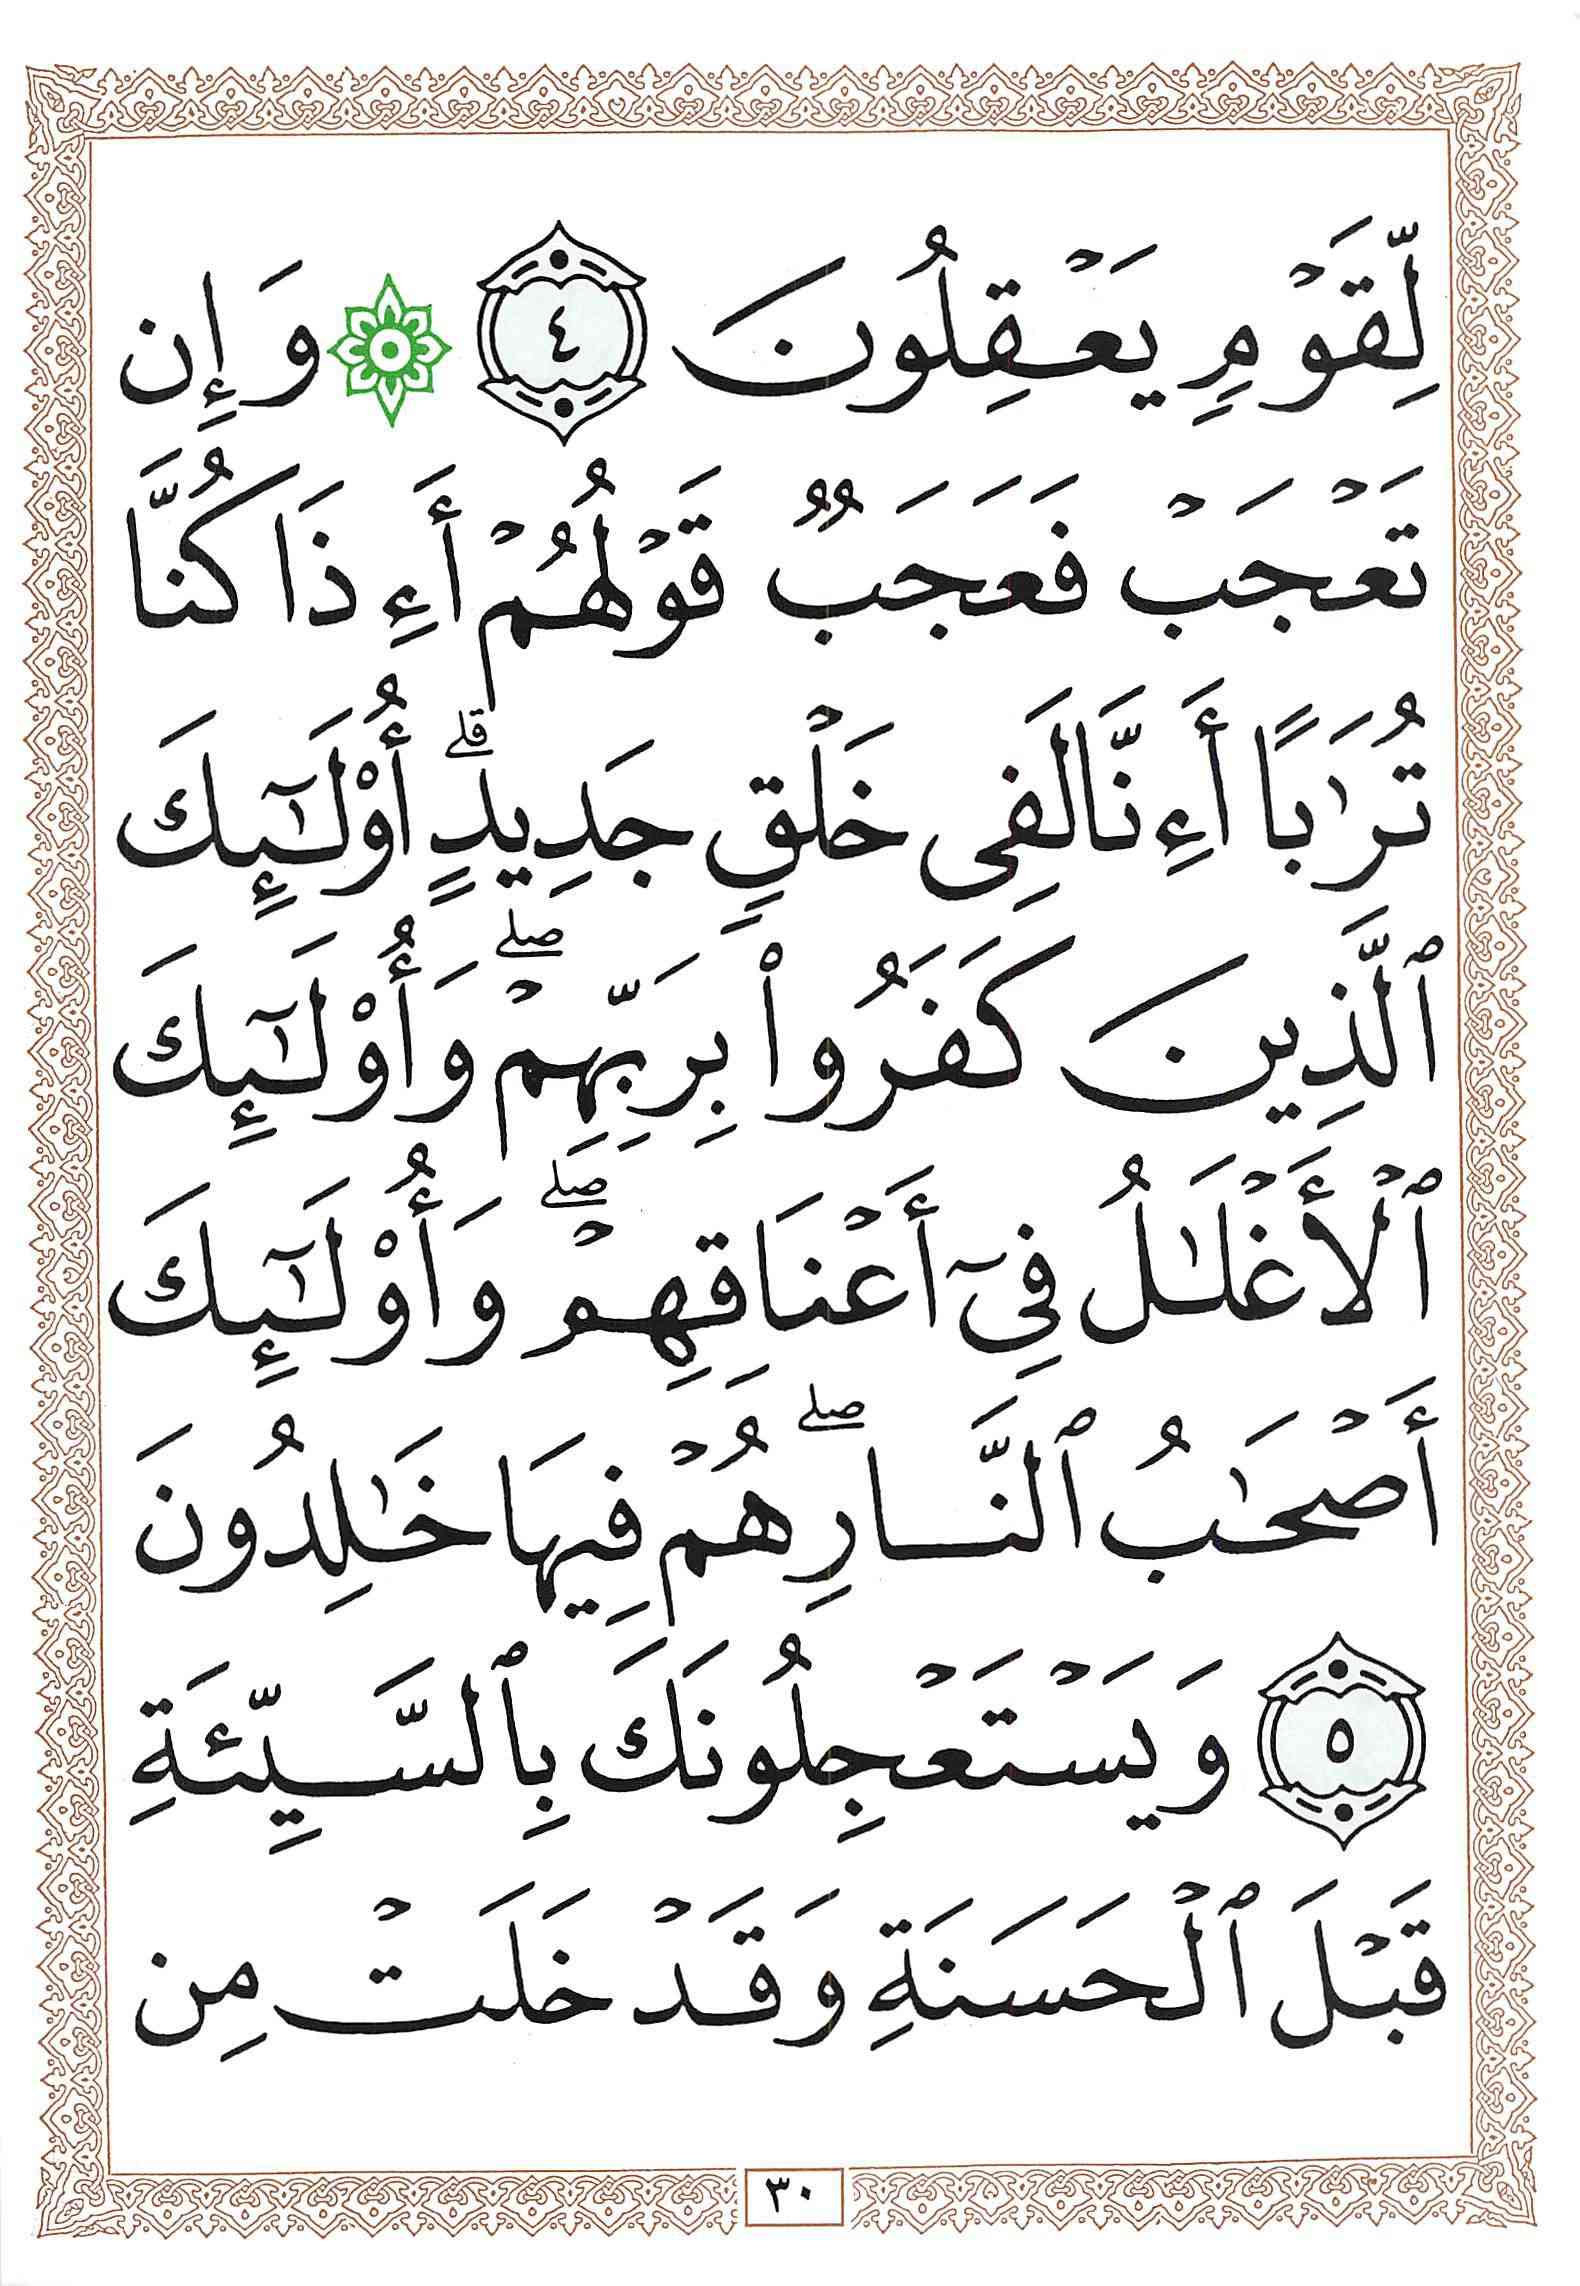 لِّقَوۡمٖ يَعۡقِلُونَ ٤ ۞ وَإِن
تَعۡجَبۡ فَعَجَبٞ قَوۡلُهُمۡ أَءِذَا كُنَّا
تُرَٰبًا أَءِنَّا لَفِي خَلۡقٖ جَدِيدٍۗ أُوْلَٰٓئِكَ
ٱلَّذِينَ كَفَرُواْ بِرَبِّهِمۡۖ وَأُوْلَٰٓئِكَ
ٱلۡأَغۡلَٰلُ فِيٓ أَعۡنَاقِهِمۡۖ وَأُوْلَٰٓئِكَ
أَصۡحَٰبُ ٱلنَّارِۖ هُمۡ فِيهَا خَٰلِدُونَ
٥ وَيَسۡتَعۡجِلُونَكَ بِٱلسَّيِّئَةِ
قَبۡلَ ٱلۡحَسَنَةِ وَقَدۡ خَلَتۡ مِن
٣٠